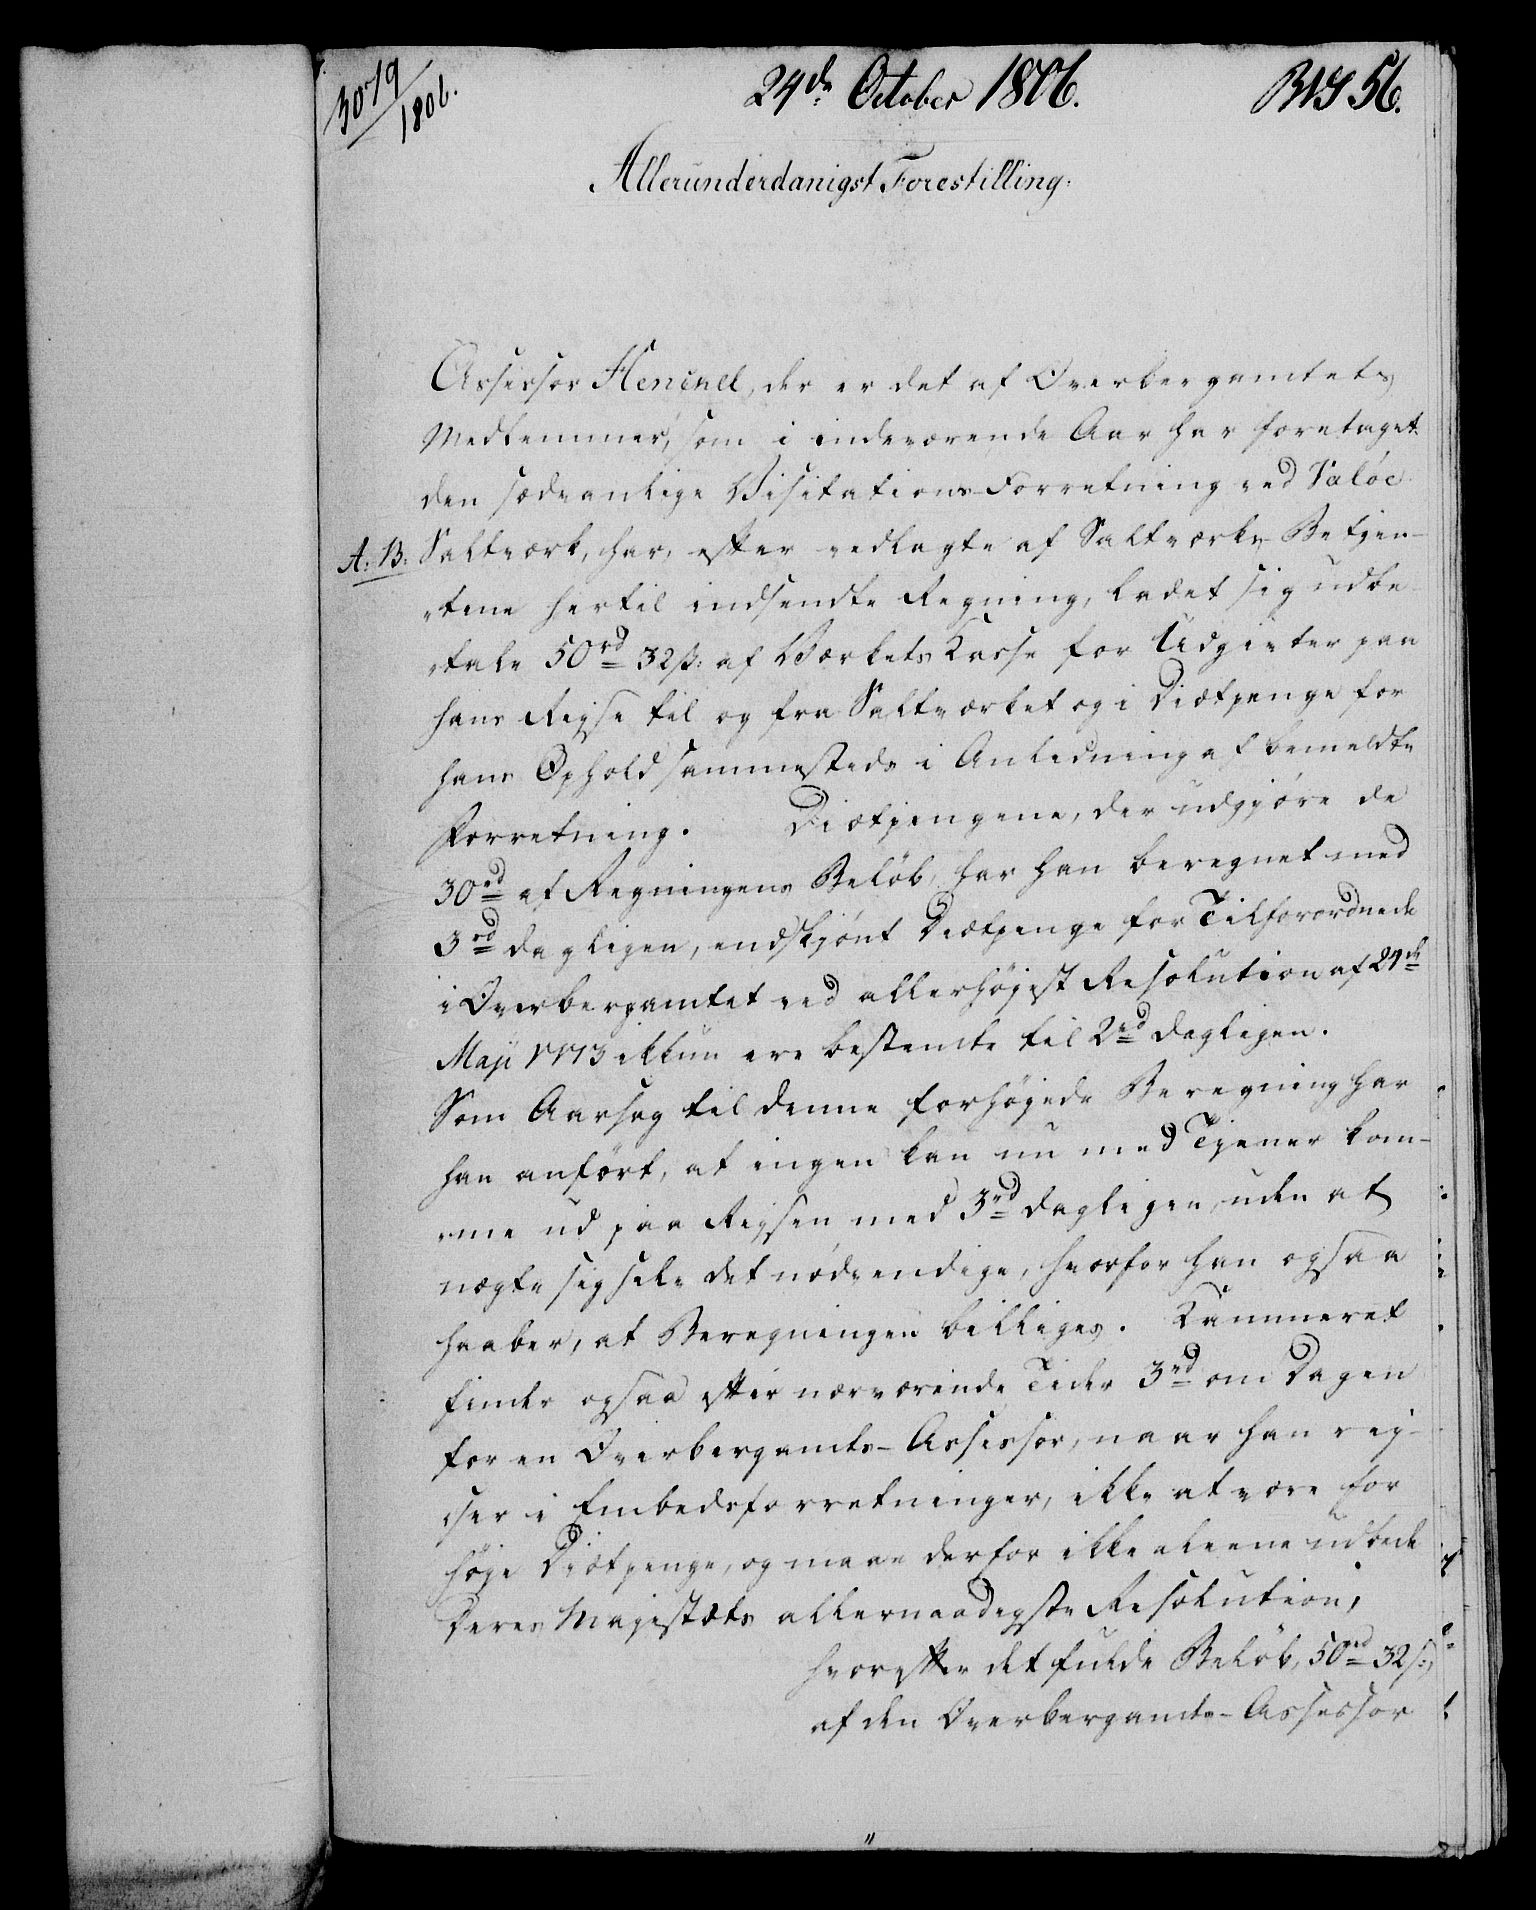 3079/1806.
24de October 1806.
BVS 56.
Allerunderdanigst Forestilling.
Assessor Henckel, der er det af Overbergamtets
Medlemmer, som i indeværende Aar har foretaget
den sædvanlige Visitations-Forretning ved Valöe
A. B. Saltværk, har, efter vedlagte af Saltværks-Betjen-
tene hertil indsendte Regning, ladet sig udbe-
tale 50 rd 32 ß: af Værkets Kasse for Udgivter paa
hans Rejse til og fra Saltværket og i Diætpenge for
hans Ophold sammesteds i Anledning af bemeldte
Forretning. Diætpengene, der udgjöre de
30 rd af Regningens Belöb, har han beregnet med
3 rd dagligen, endskjönt Diætpenge for Tilforordnede
i Overbergamtet ved allerhöjest Resolution af 24de
Maji 1773 ikkun ere bestemte til 2 rd dagligen.
Som Aarsag til denne forhöjede Beregning har
han anfört, at ingen kan nu med Tjener kom-
me ud paa Rejsen med 3 rd dagligen, uden at
nægte sig selv det nödvendige, hvorfor han ogsaa
haaber, at Beregningen billiges. Kammeret
finder ogsaa efter nærværende Tider 3 rd om Dagen
for en Overbergamts-Assessor, naar han rej-
ser i Embedsforretninger, ikke at være for
höje Diætpenge, og maae derfor ikke aleene udbede
Deres Majestæts allernaadigste Resolution,
hvorefter det fulde Belöb, 50 rd 32 ß,
af den Overbergamts-Assessor